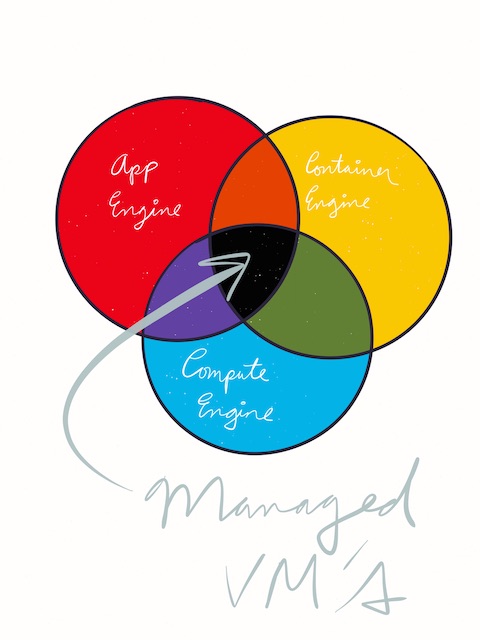 App
Engine
Container
Engine
Compute
Engine
Managed
VM's